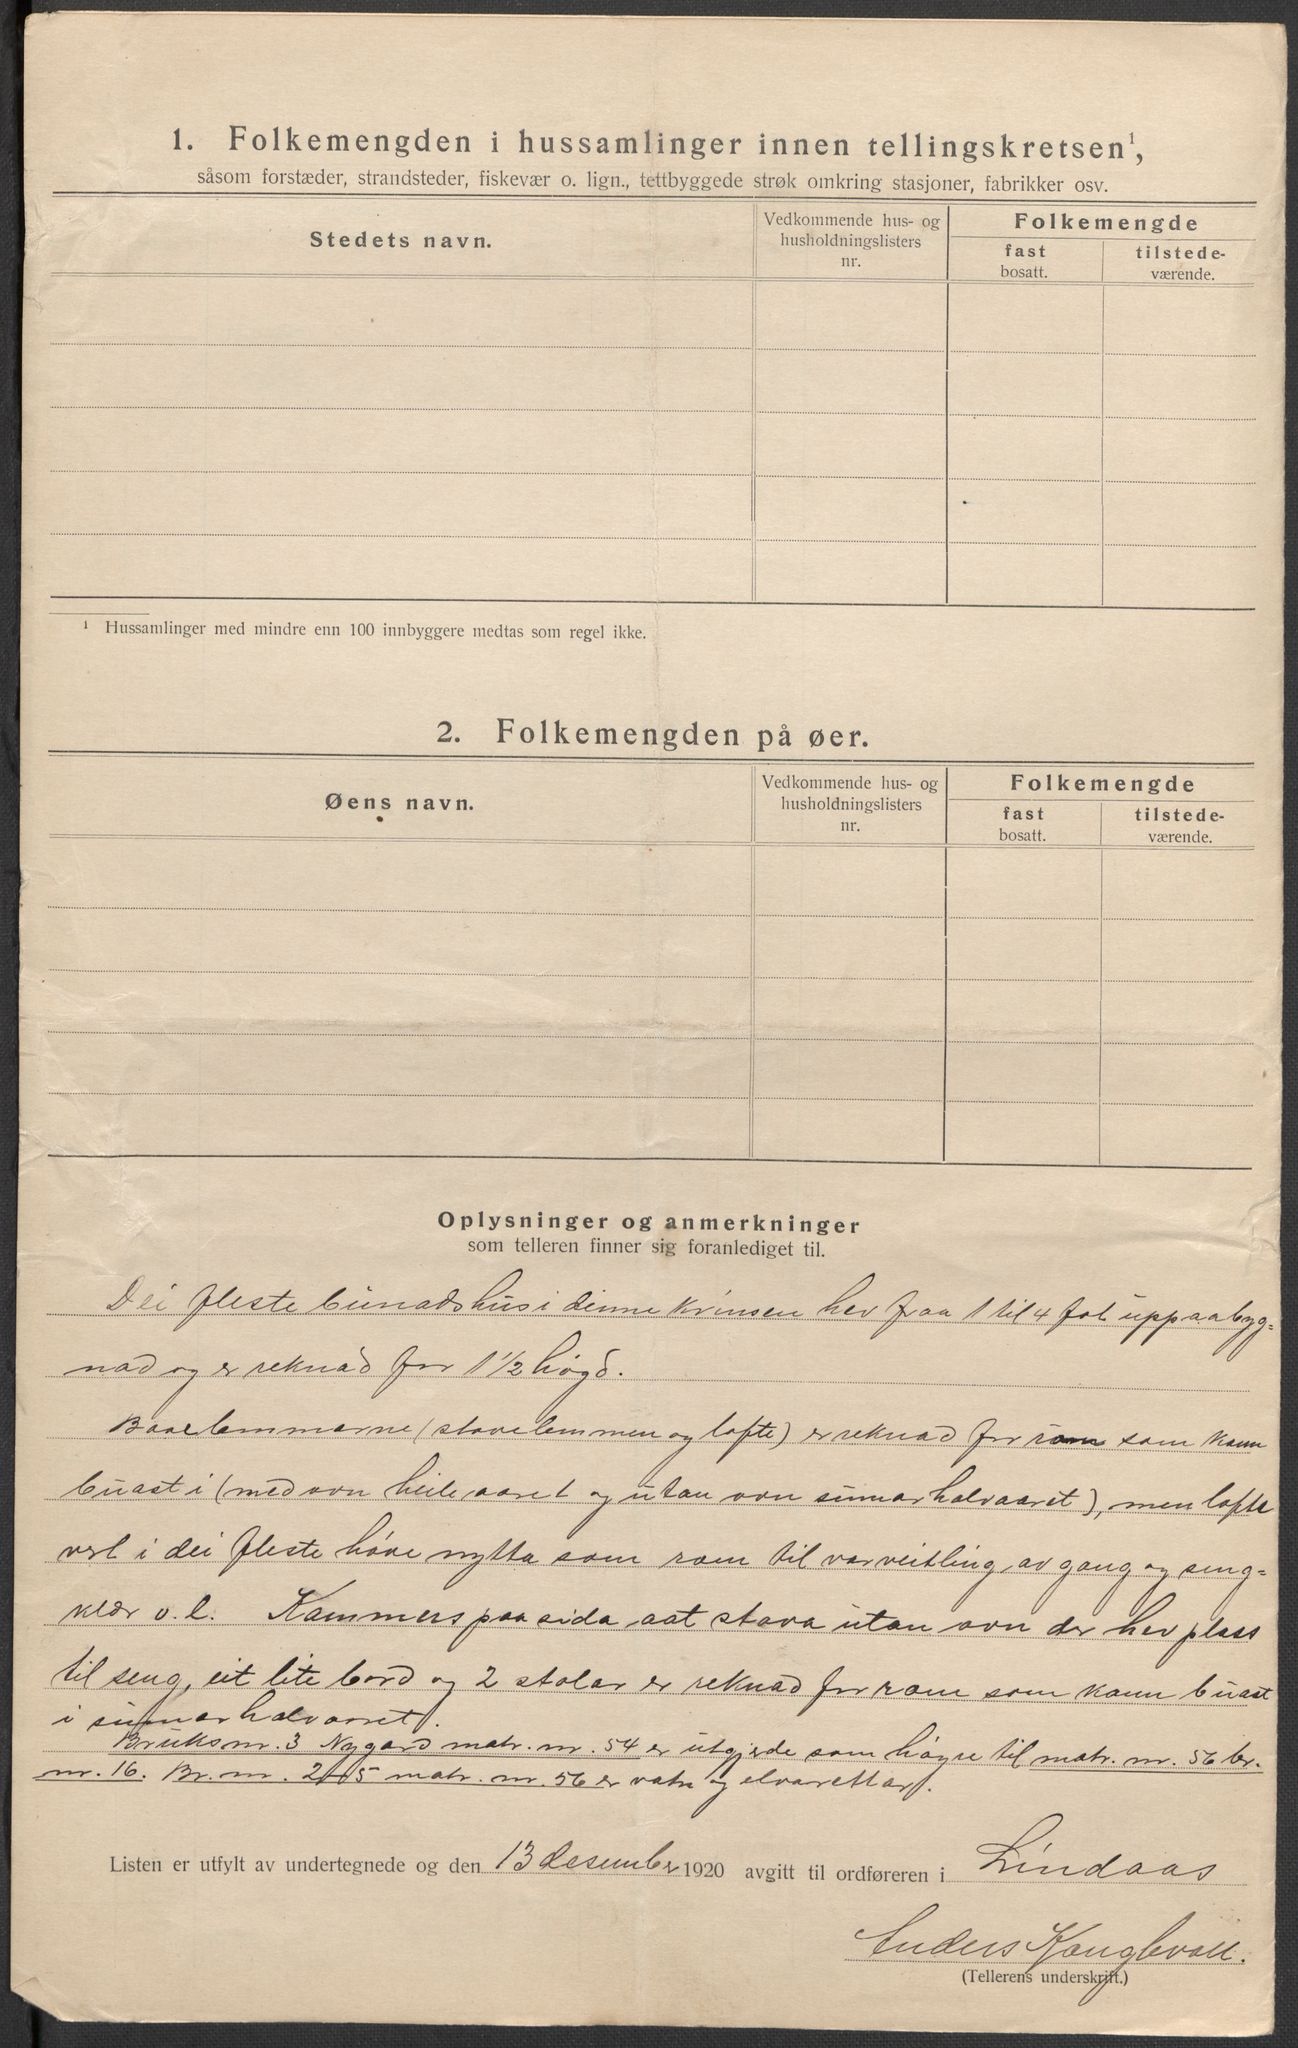 1. Folkemengden i hussamlinger innen tellingskretsen¹,
såsom forstæder, strandsteder, fiskevær o. lign., tettbyggede strøk omkring stasjoner, fabrikker osv.
Stedets navn.
Vedkommende hus- og husholdningslisters nr.
Folkemengde
fast bosatt.
tilstede-værende.
¹ Hussamlinger med mindre enn 100 innbyggere medtas som regel ikke.
2. Folkemengden på øer.
Øens navn.
Vedkommende hus- og husholdningslisters nr.
Folkemengde
fast bosatt.
tilstede-værende.
Oplysninger og anmerkninger
som telleren finner sig foranlediget til.
Dei fleste bunadshus i denne krinsen hev fraa 1 til 4 fot uppaabyg=
nad og er reknad for 1 1/2 høgd.
(stovelemmen og lofte) er reknad for rom som kann
buast i (med ovn heile aaret og utan ovn sumarhalvaaret), men lofte
vert i dei fleste høve nytta som rom til varveitling av gang og seng=
klær o.l. Kammers paa sida aat stova utan ovn der hev plass
til seng, eit lite bord og 2 stolar er reknad for rom som kann buast
i sumarhalvaaret.
Bruksnr. 3 Nygard matr. nr. 54 er utgjede som høyre til matr. nr. 56 br.
nr. 16. Br. nr. 2 15 matr. nr. 56 er vatn og elvarettar.
Listen er utfylt av undertegnede og den 13 desember 1920 avgitt til ordføreren i Lindaas
Anders Konglevoll.
(Tellerens underskrift.)